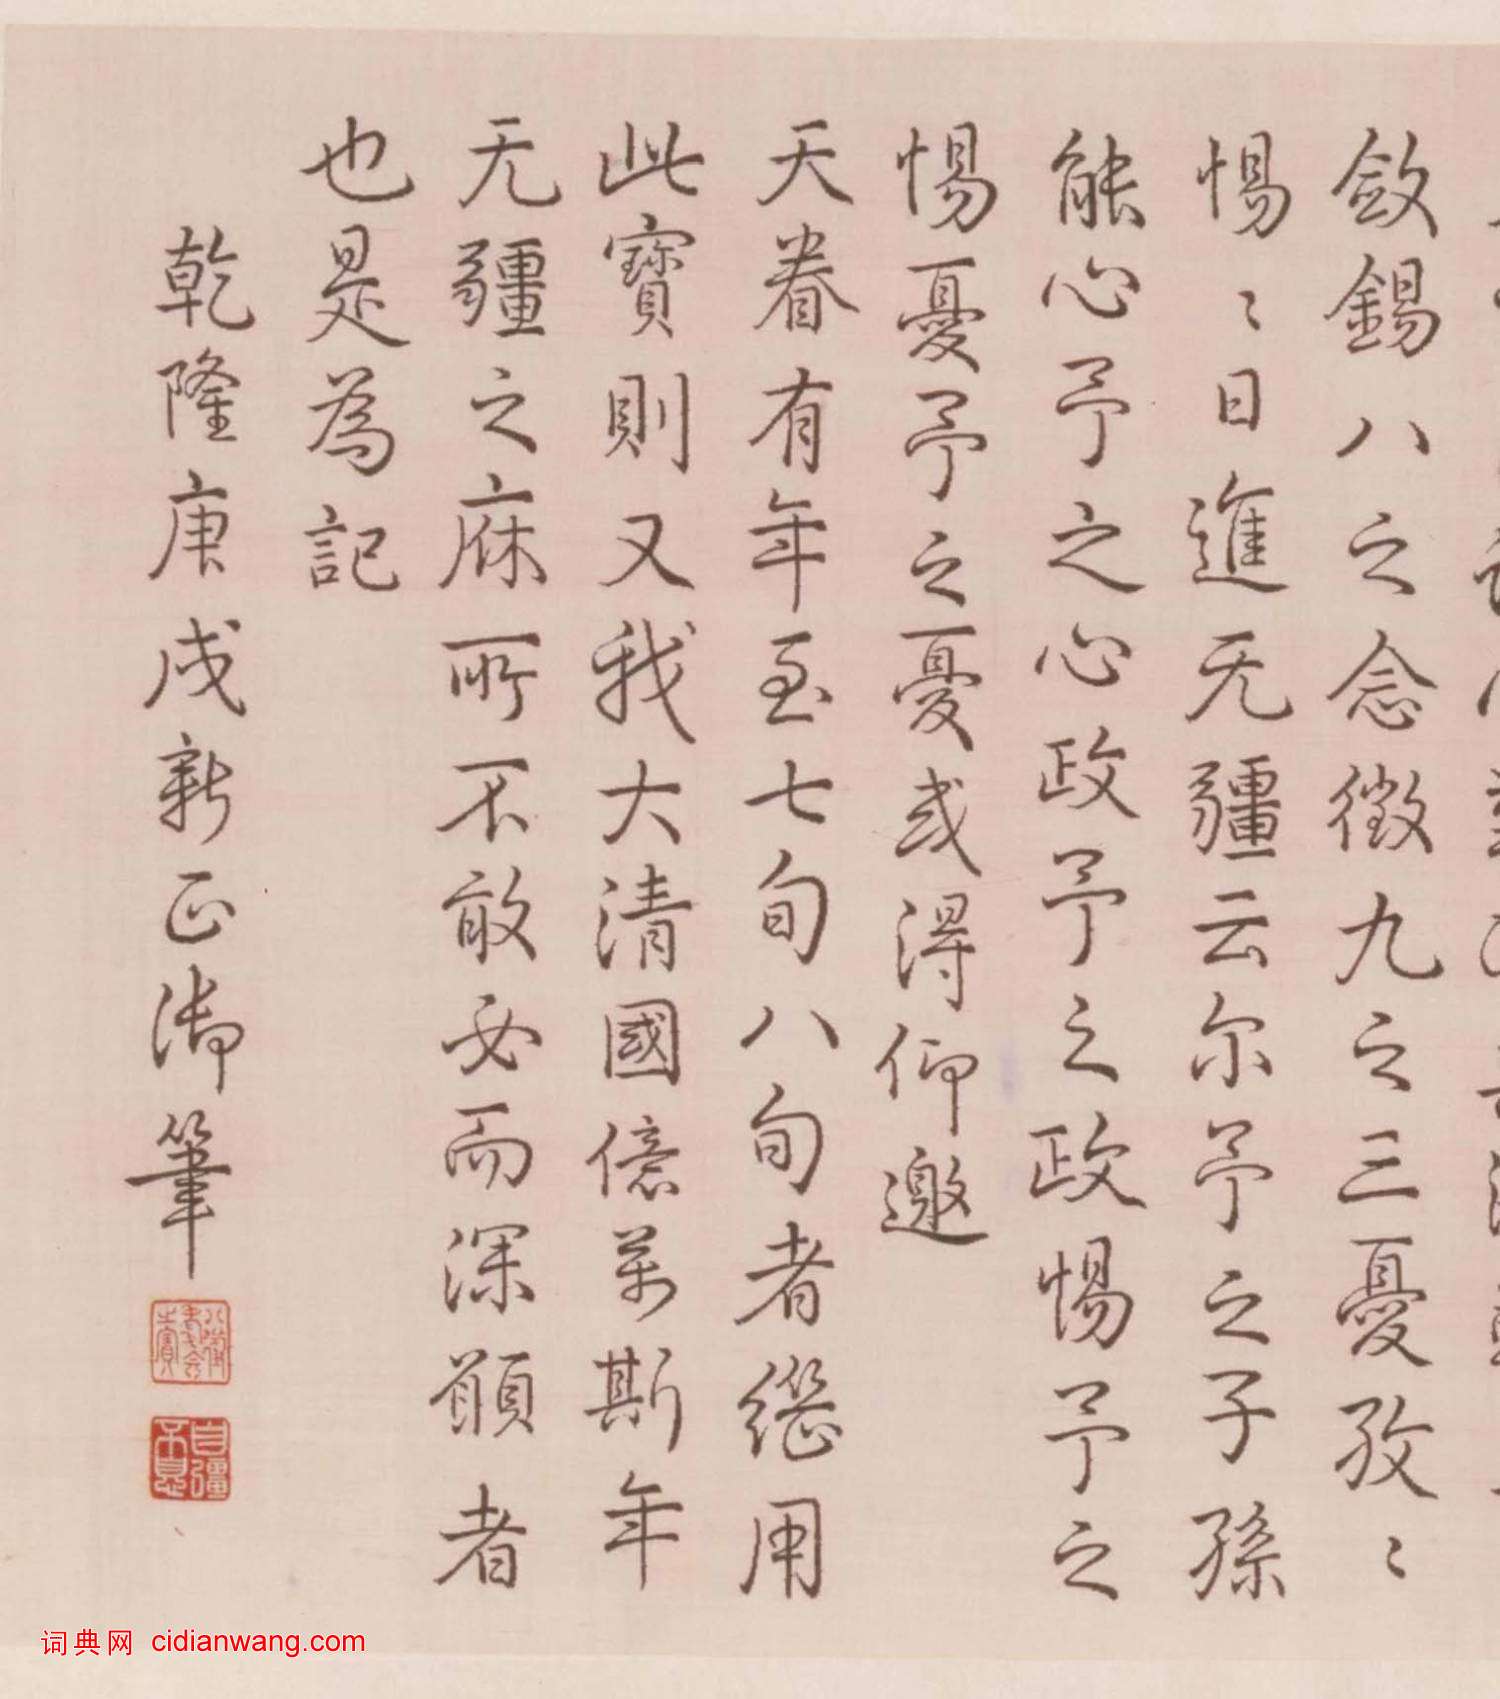 斂錫八之念徵九之三憂孜〻
惕〻日進无疆云尔予之子孫
能心予之心政予之政惕予之
惕憂予之憂或得仰邀
天眷有年至七旬八旬者繼用
此寶則又我大清國億萬斯年
无疆之庥所不敢必而深願者
也是為記
乾隆庚戌新正御筆
八徵耄念之寶
自彊不息
词典网 cidianwang.com